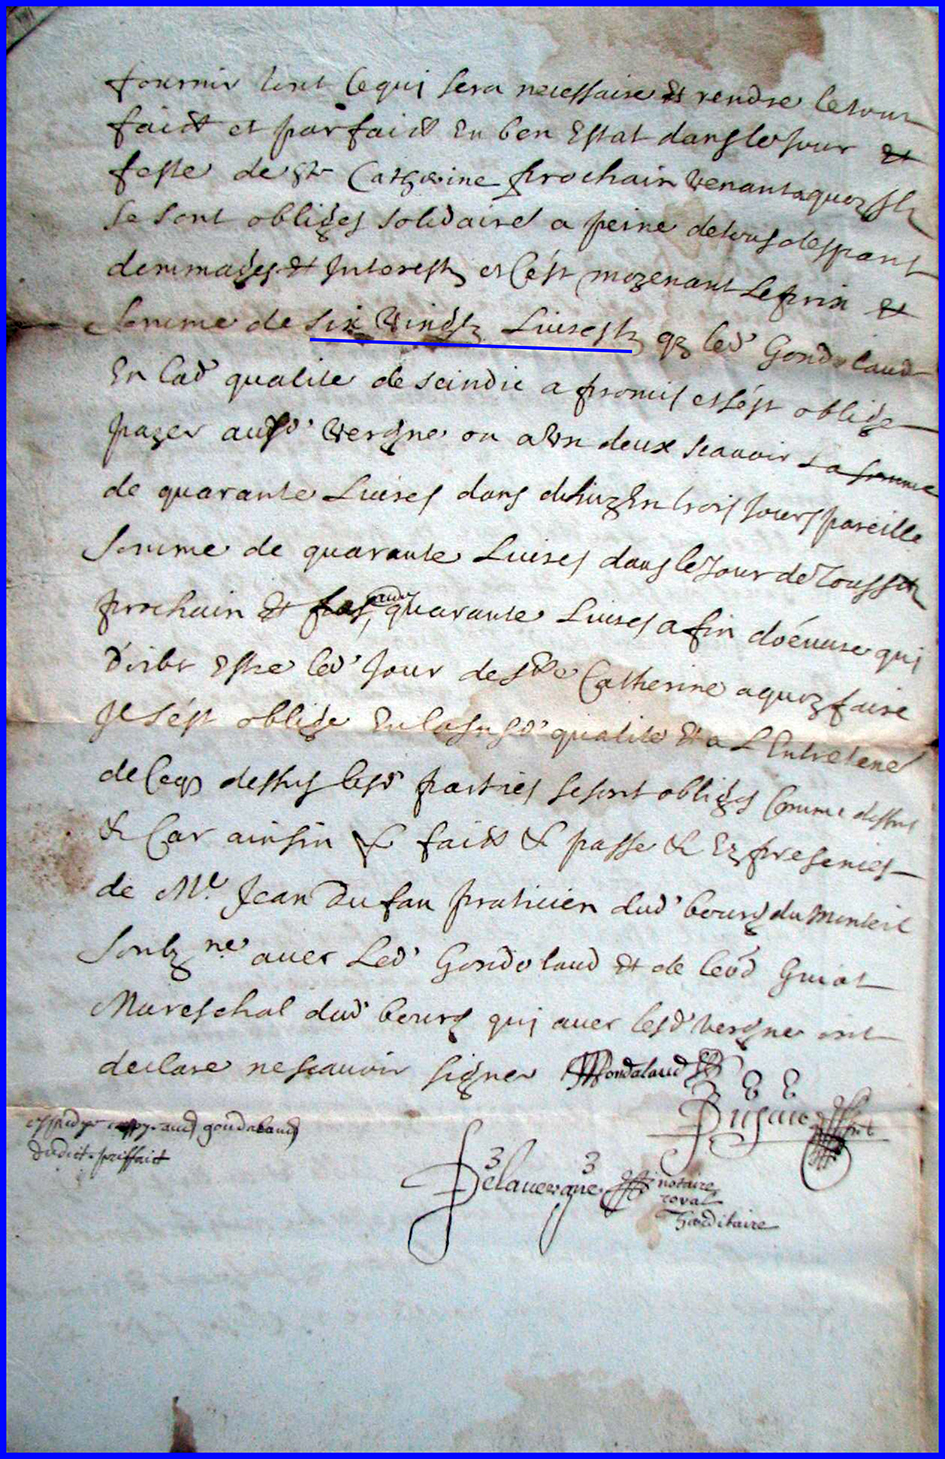 fournir tout ce qui sera necessaire et rendre le tout
faict et parfaict en bon estat dans le jour et
feste de Ste Catherine prochain venant a quoy ilz
se sont obliges solidaires a peine de tous despant
dommages et Interestz et c'est moyenant le prix et
somme de six vingtz Livresz qe led Gondolaud
En lad qualite de scindic a promis et s'est oblige
payer ausd Vergne ou a l'un deux scavoir La somme
de quarante Livres dans trois Jours pareille
somme de quarante Livres dans le Jour de Toussctz
prochain et quarante Livres a fin d'oeuvre qui
doibt Estre led Jour de Ste Catherine a quoy faire
Il s'est oblige En la susd qualite Et a L'Entretene
de ceqs dessus lesd parties se sont obliges comme dessus
& Car ainsin & faict & passe & Ez presences
de Me Jean Dufau praticien dud bourg du Monteil
Soubz ne avec Led Gondolaud et de Guiat
Mareschal dud bourg qui avec lesd Vergne ont
declare ne scavoir signer Gondalaud
gondalaud
dudict prisfaict
Delavergne notaire
royal
hereditaire